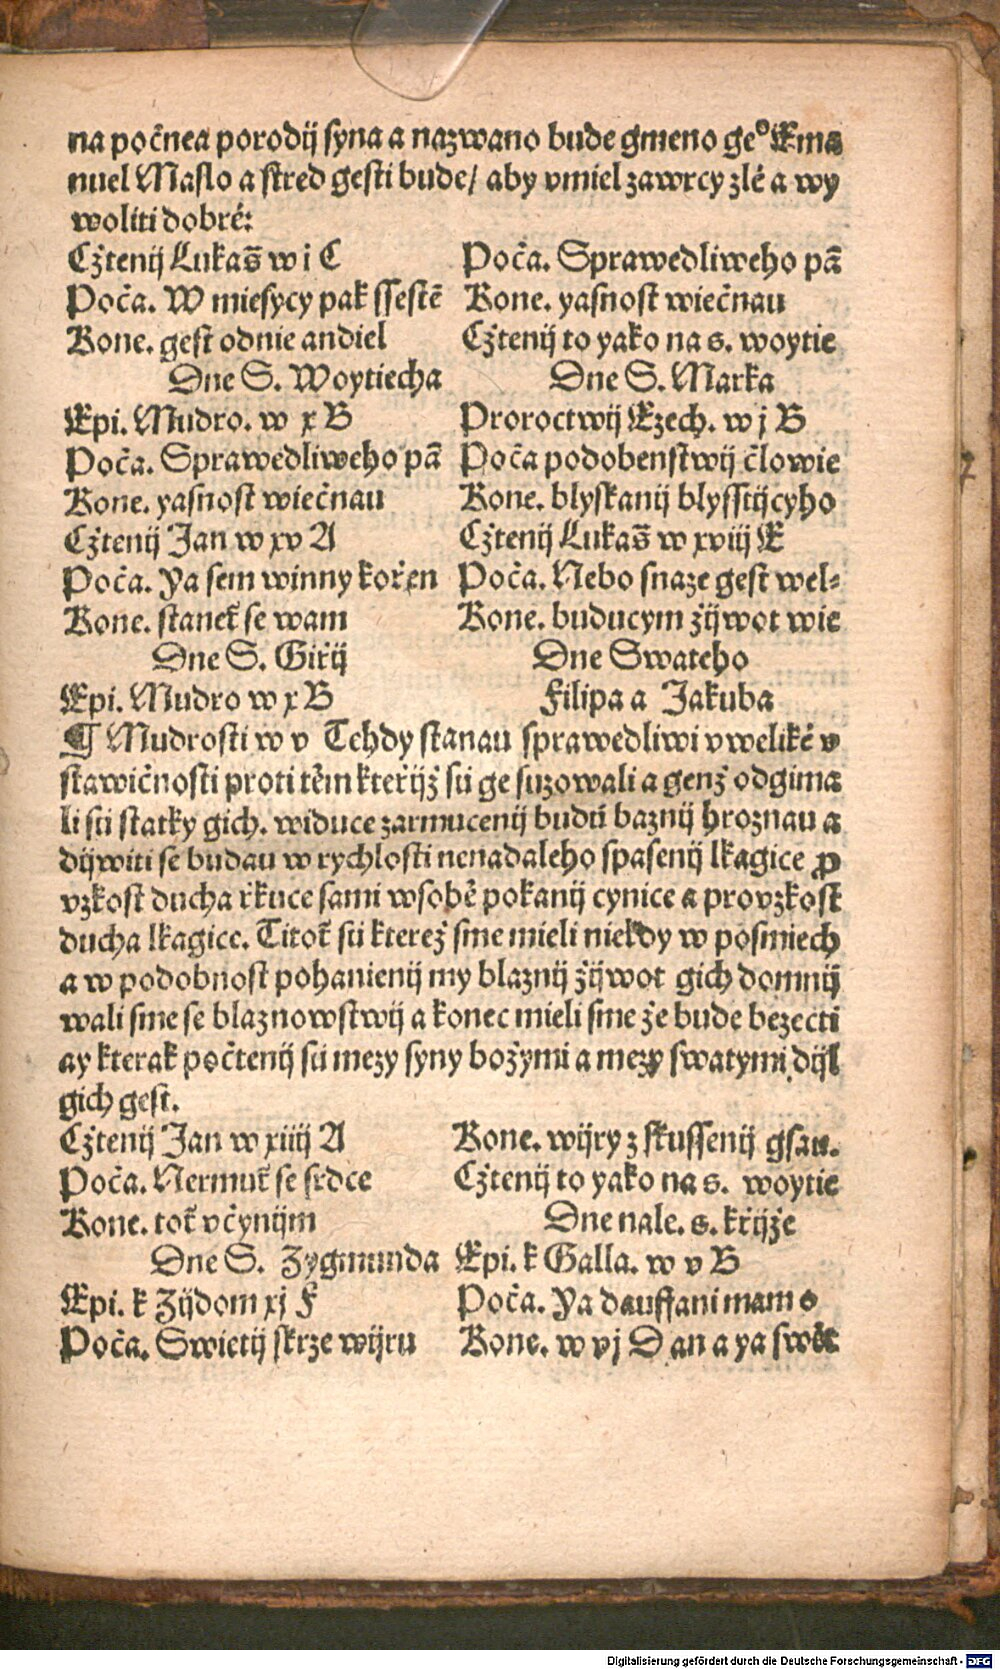 na počnea porodij syna a nazwano bude gmeno ge° Ema
nuel Maslo a stred gesti bude/ aby vmiel zawrcy zlé a wy
woliti dobré:
Cžtenij Lukaš w i C
Poča. W miesycy pak ssestē
Kone. gest odnie andiel
Dne S. Woytiecha
Epi. Mudro. w x B
Poča. Sprawedliweho pā
Kone. yasnost wiečnau
Cžtenij Jan w xv A
Poča. Ya sem winny kořen
Kone. staneť se wam
Dne S. Giřij
Epi. Mudro w x B
Poča. Sprawedliweho pā
Kone. yasnost wiečnau
Cžtenij to yako na s. woytie
Dne S. Marka
Proroctwij Ezech. w j B
Poča podobenstwij človie
Kone. blyskanij blysstijcyho
Cžtenij Lukaš w xviij E
Poča. Nebo snaze gest wel-
Kone. buducym žijwot wie
Dne Swateho
Filipa a Jakuba
¶ Mudrosti w v Tehdy stanau sprawedliwi v weliké v
stawičnosti proti těm kteřijž sú ge suzowali a genž odgima
li sú statky gich. widuce zarmucenij budú baznij hroznau a
dijwiti se budau w rychlosti nenadaleho spasenij lkagice ꝓ
vzkost ducha řkuce sami wsobě pokanij cynice a provzkost
ducha lkagice. Titoť sú kterež sme mieli niekdy w posmiech
a w podobnost pohanienij my blaznij žijwot gich domnij
wali sme se blaznowstwij a konec mieli sme že bude bezecti
ay kterak počtenij sú mezy syny božymi a mezy swatymi dijl
gich gest.
Cžtenij Jan w xiiij A
Poča. Nermuť se srdce
Kone. toť včynijm
Dne S. Zygmunda
Epi. k Zijdom xj F
Poča. Swietij skrze wijru
Kone. wijry z skussenij gsau.
Cžtenij to yako na s. woytie
Dne nale. s. křijže
Epi. k Galla. w v B
Poča. Ya dauffani mam o
Kone. w vj D an a ya swět
Digitalisierung gefördert durch die Deutsche Forschungsgemeinschaft - DFG